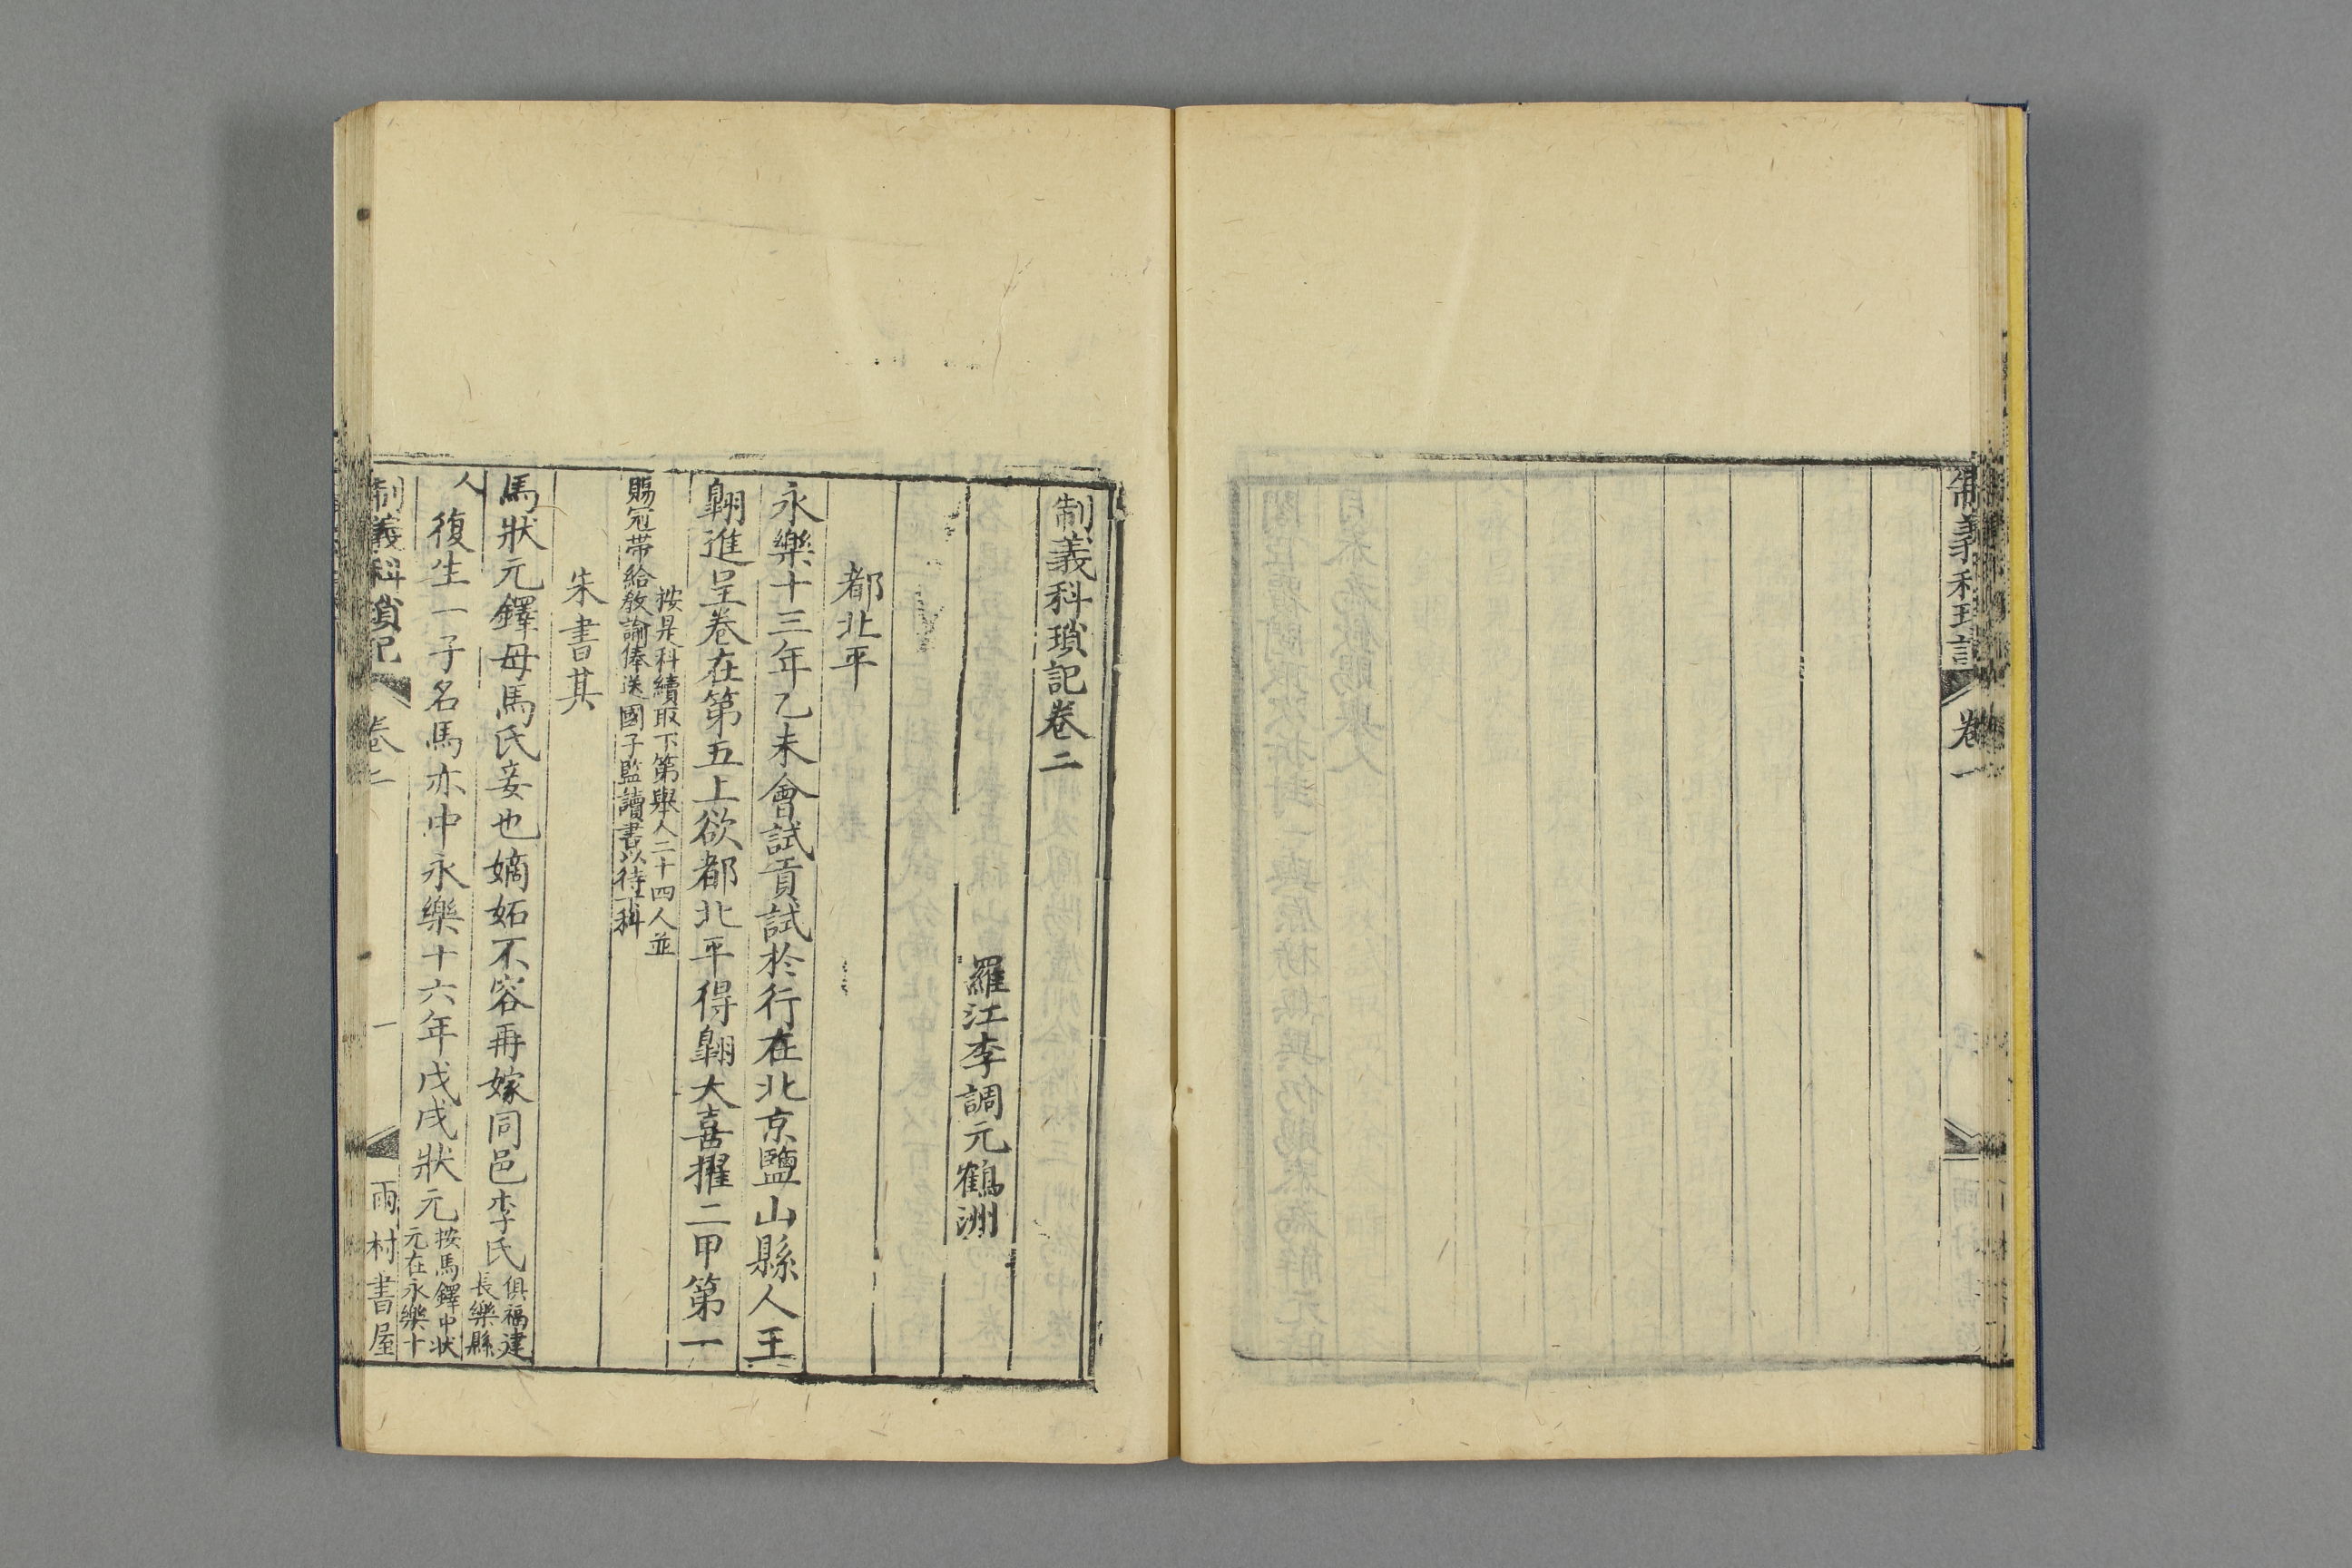 制義科瑣記
卷一
制義科瑣記卷二
羅江李調元鶴洲
都北平
永樂十三年乙未會試貢試於行在北京鹽山縣人王
翺進呈卷在第五上欲都北平得翺大喜擢二甲第一
按是科續取下第舉人二十四人並
賜冠帶給敎諭俸送國子監讀書以待後科
朱書其
馬狀元鐸母馬氏妾也嫡妬不容再嫁同邑李氏
俱福建
長樂縣
人
復生一子名馬亦中永樂十六年戊戌狀元
按馬鐸中狀
元在永樂十
制義科瑣記
卷二
一
雨村書屋